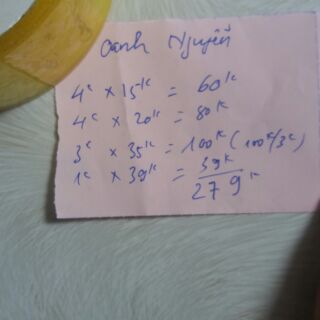 Oanh Nguyễn
4c × 15k = 60k
4c × 20k = 80k
3c × 35k = 100k (100k/3c)
1c × 39k = 39k
279k